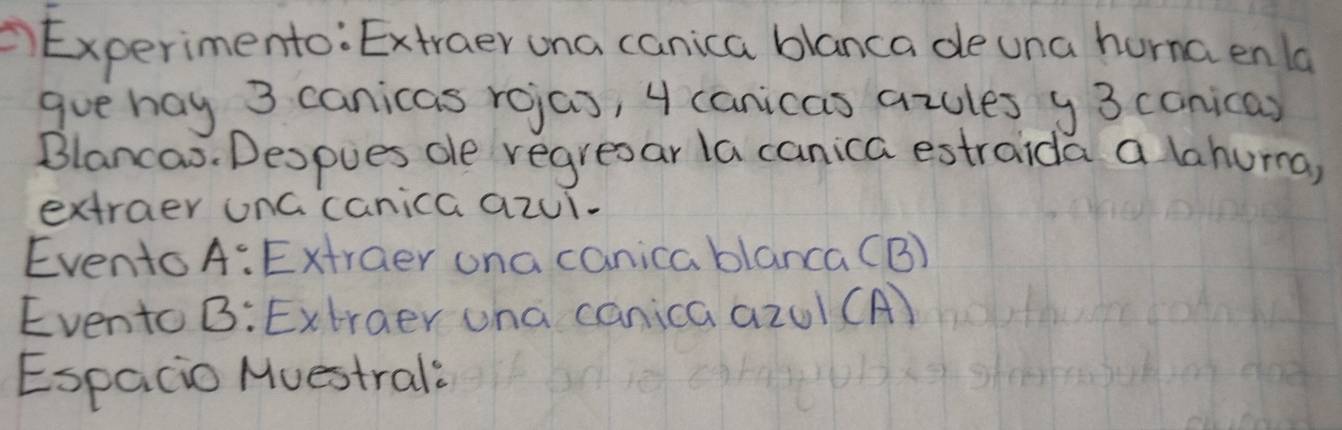 Experimento: Extraer una canica blanca de una hurna en la
que hay 3 canicas rojas, 4 canicas azules y 3 canicas
Blancas. Despues de regresar la canica estraida a la hurna,
extraer una canica azul.
Evento A: Extraer una canica blanca (B)
Evento B: Extraer una canica azul (A)
Espacio Muestral: